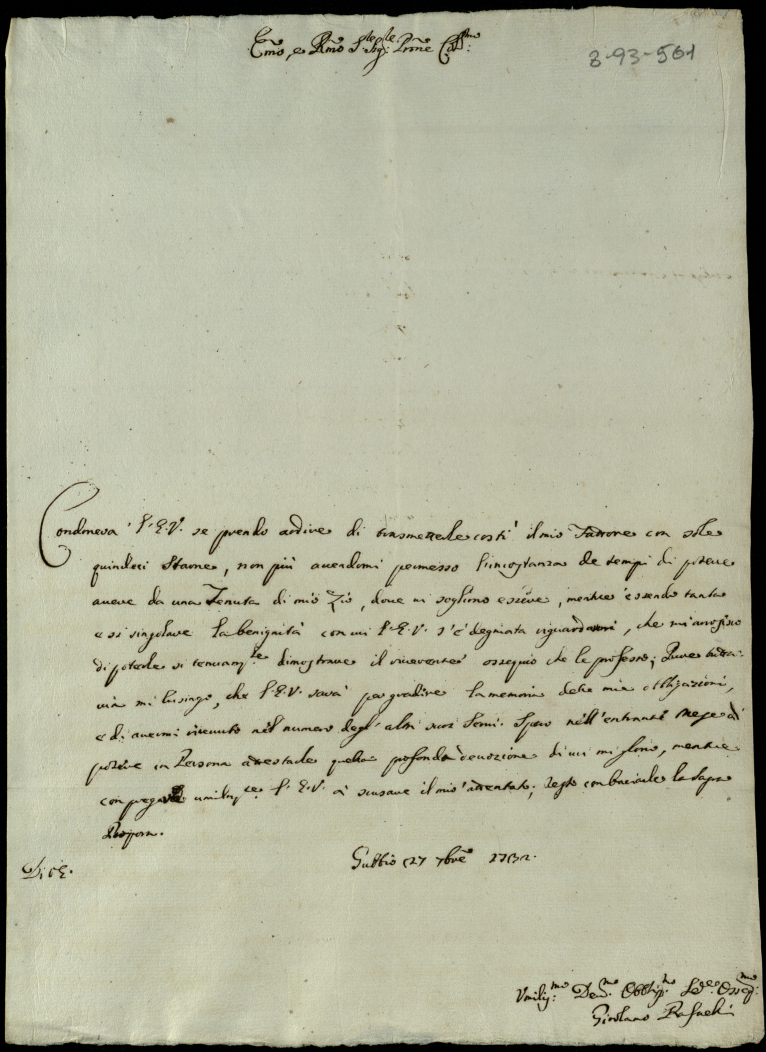 Emo, e Rmo Sig.re Sig.r Prone Col.mo
3-93-501
Condonerà l'E.V. se prendo ardire di trasmetterle costì il mio Fattore con sole
quindeci Starne, non più avendomi permesso l'incostanza de tempi di potere
avere da una Tenuta di mio Zio, dove vi sogliono essere, mentre essendo tanta
e sì singolare la benignità con cui l'E.V. s'è degnata riguardarmi, che mi arrossisco
di poterle sì tenuam.te dimostrare il riverente ossequio che le professo; Pure tutta-
via mi lusingo, che l'E.V. sarà per gradire la memoria delle mie obbligazioni,
e di avermi ricevuto nel numero degl'altri suoi Servi. Spero nell'entrante Mese di
potere in Persona attestarle quella profonda devozione di cui mi glorio, mentre
con pregare umilm.te l'E.V. à scusare il mio attentato, resto con baciarle la Sagra
Porpora.
Di V.E. Gubbio 27 7bre 1732.
Umilis.mo Dev.mo Obblig.mo Ser.re Osseq.mo
Girolamo Rafaelli